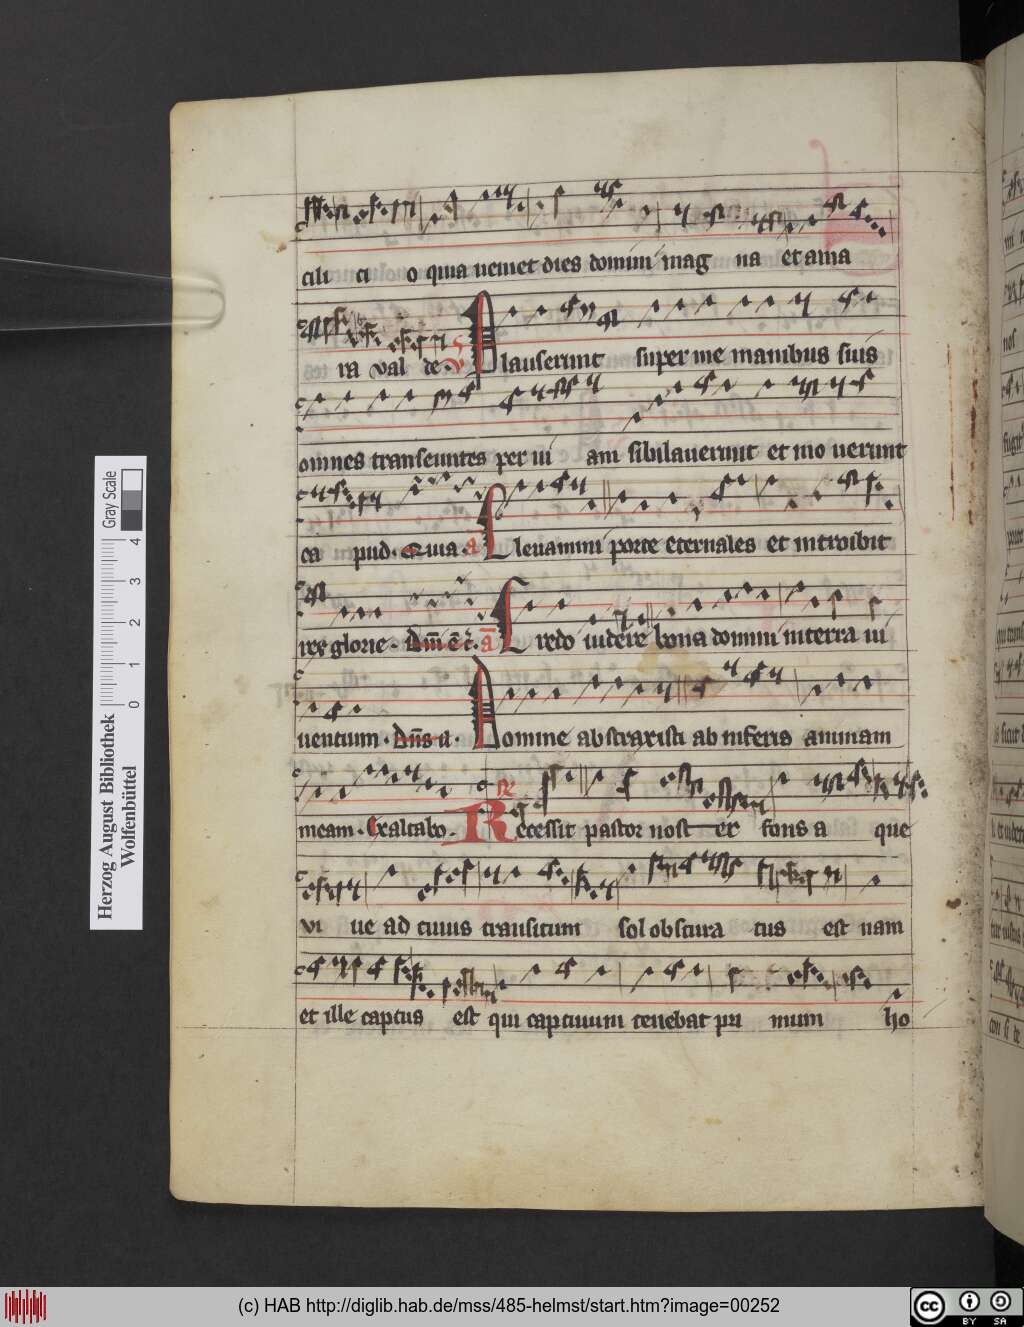 cili ci o quia ueniet dies domini mag na et ama
ra val de. V Plauserunt super me manibus suis
omnes transeuntes per ui am sibilauerunt et mo uerunt
ca pud. Quia. a Eleuamini porte eternales et introibit
rex glorie. Dm̅ e̅ t̅. a̅ Credo uidere bona domini in terra ui
uentium. Dn̅s il. a Domine abstraxisti ab inferis animam
meam. Exaltabo. R Recessit pastor nost er fons a que
vi ue ad cuius transitum sol obscura tus est nam
et ille captus est qui captiuum tenebat pri mum ho
Herzog August Bibliothek
Wolfenbüttel
0 1 2 3 4
Gray Scale
(c) HAB http://diglib.hab.de/mss/485-helmst/start.htm?image=00252
cc BY SA